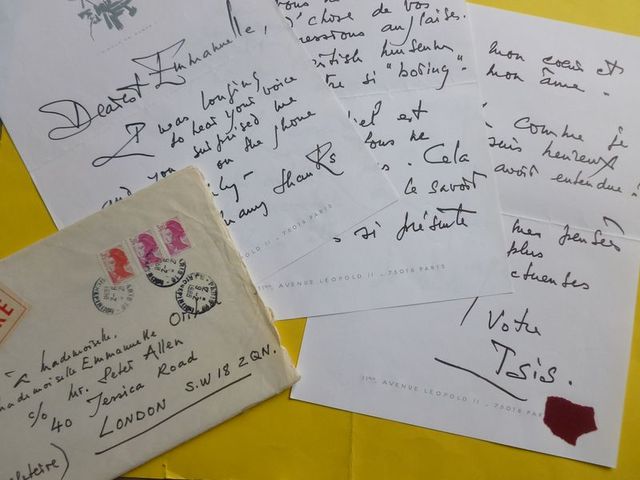 Dearest Emmanuelle,
I was longing
to hear your voice
and you surprised me
on the phone
many thanks
'chose de vos
pressions anglaises.
British humour
si "boring"
est
ne
. Cela
le savoir
si présente
11bis AVENUE LEOPOLD II - 75016 PARIS
mon coeur et
mon âme.
comme je
suis heureux
avoir entendue!
mes pensées
plus
Votre
Isis.
11bis AVENUE LEOPOLD II - 75016 PARIS
75016 PARIS
RE
à Mademoiselle,
Mademoiselle Emmanuelle
c/o Mr. Peter Allen
40 Jessica Road
LONDON S.W 18 2.Q.N.